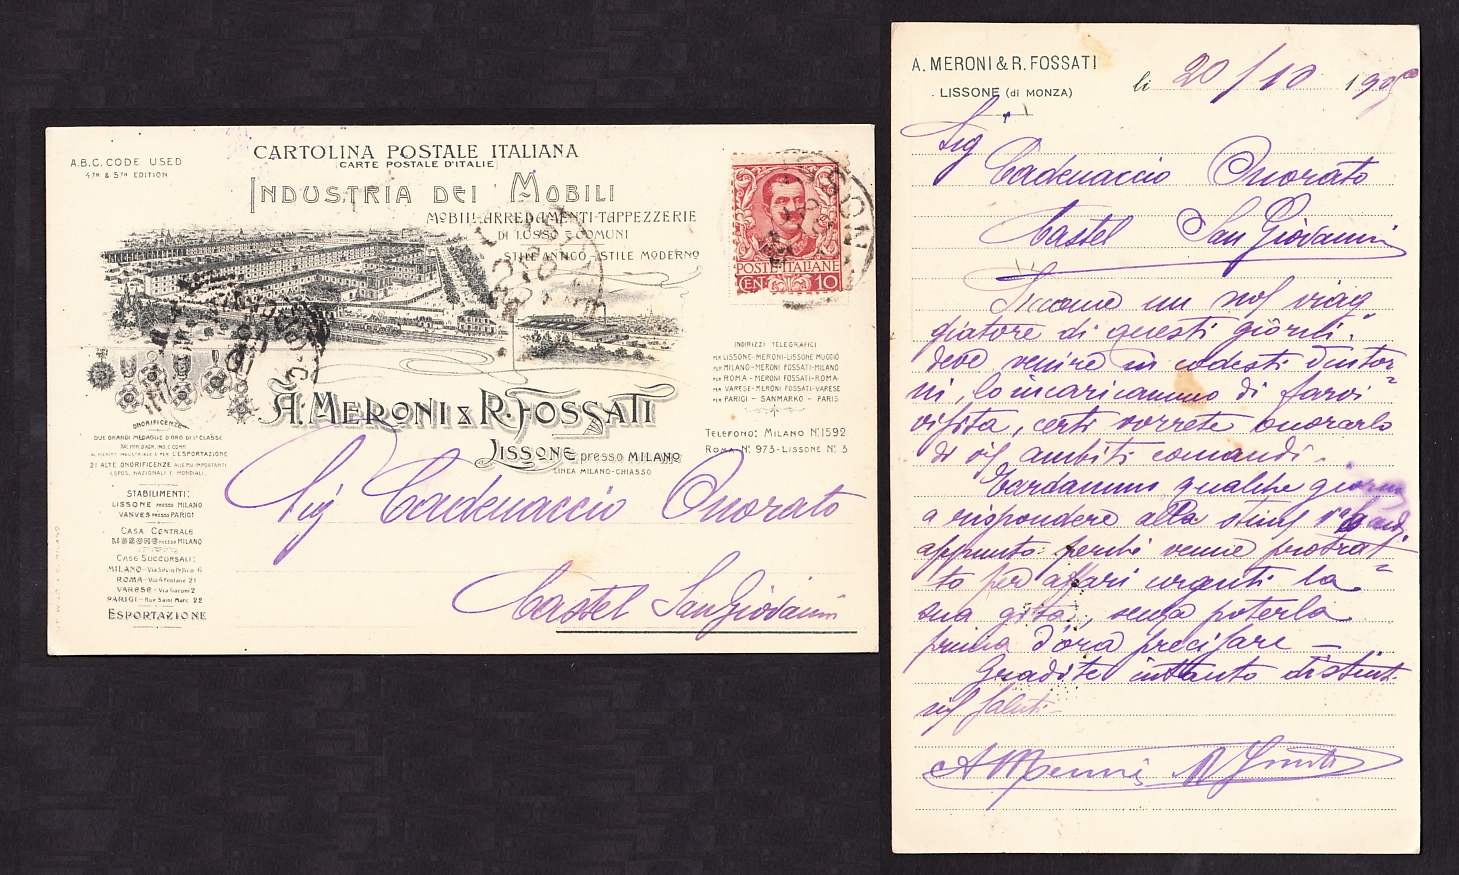 A.B.C. CODE USED
4TH & 5TH EDITION
CARTOLINA POSTALE ITALIANA
(CARTE POSTALE D'ITALIE)
INDUSTRIA DEI MOBILI
MOBILI-ARREDAMENTI-TAPPEZZERIE
DI LUSSO E COMUNI
STILE ANTICO - STILE MODERNO
POSTE ITALIANE
CEN 10
INDIRIZZI TELEGRAFICI
PER LISSONE-MERONI-LISSONE MUGGIÒ
PER MILANO-MERONI FOSSATI-MILANO
PER ROMA-MERONI FOSSATI-ROMA
PER VARESE-MERONI FOSSATI-VARESE
PER PARIGI - SANMARKO - PARIS
ONORIFICENZE
DUE GRANDI MEDAGLIE D'ORO DI 1ª CLASSE
AL MERITO INDUSTRIALE E PER L'ESPORTAZIONE
21 ALTE ONORIFICENZE ALLE PIÙ IMPORTANTI
ESPOS. NAZIONALI E MONDIALI.
A. MERONI & R. FOSSATI
LISSONE presso MILANO
LINEA MILANO-CHIASSO
TELEFONO: MILANO Nº 1592
ROMA Nº 973-LISSONE Nº 3
STABILIMENTI:
LISSONE PRESSO MILANO
VANVES PRESSO PARIGI
CASA CENTRALE
LISSONE PRESSO MILANO
CASE SUCCURSALI:
MILANO-Via Silvio Pellico 6
ROMA-Via 4 Fontane 21
VARESE-Via Garoni 2
PARIGI-Rue Saint Marc 22
ESPORTAZIONE
Sig Cadenaccio Onorato
Castel San Giovanni
A. MERONI & R. FOSSATI
LISSONE (di MONZA)
li 20/10 190
Sig
Cadenaccio Onorato
Castel San Giovanni
Siccome un nos viag
giatore di questi giorni
deve venire in codesti dintor=
ni, lo incaricammo di farvi
visita, certi vorrete onorarlo
di ambiti comandi.
Tardammo qualche giorno
a rispondere alla
appunto perchè venne protrat=
to per affari urgenti la
sua gita, senza poterla
prima d'ora precisare -
Gradite intanto distint.
saluti -